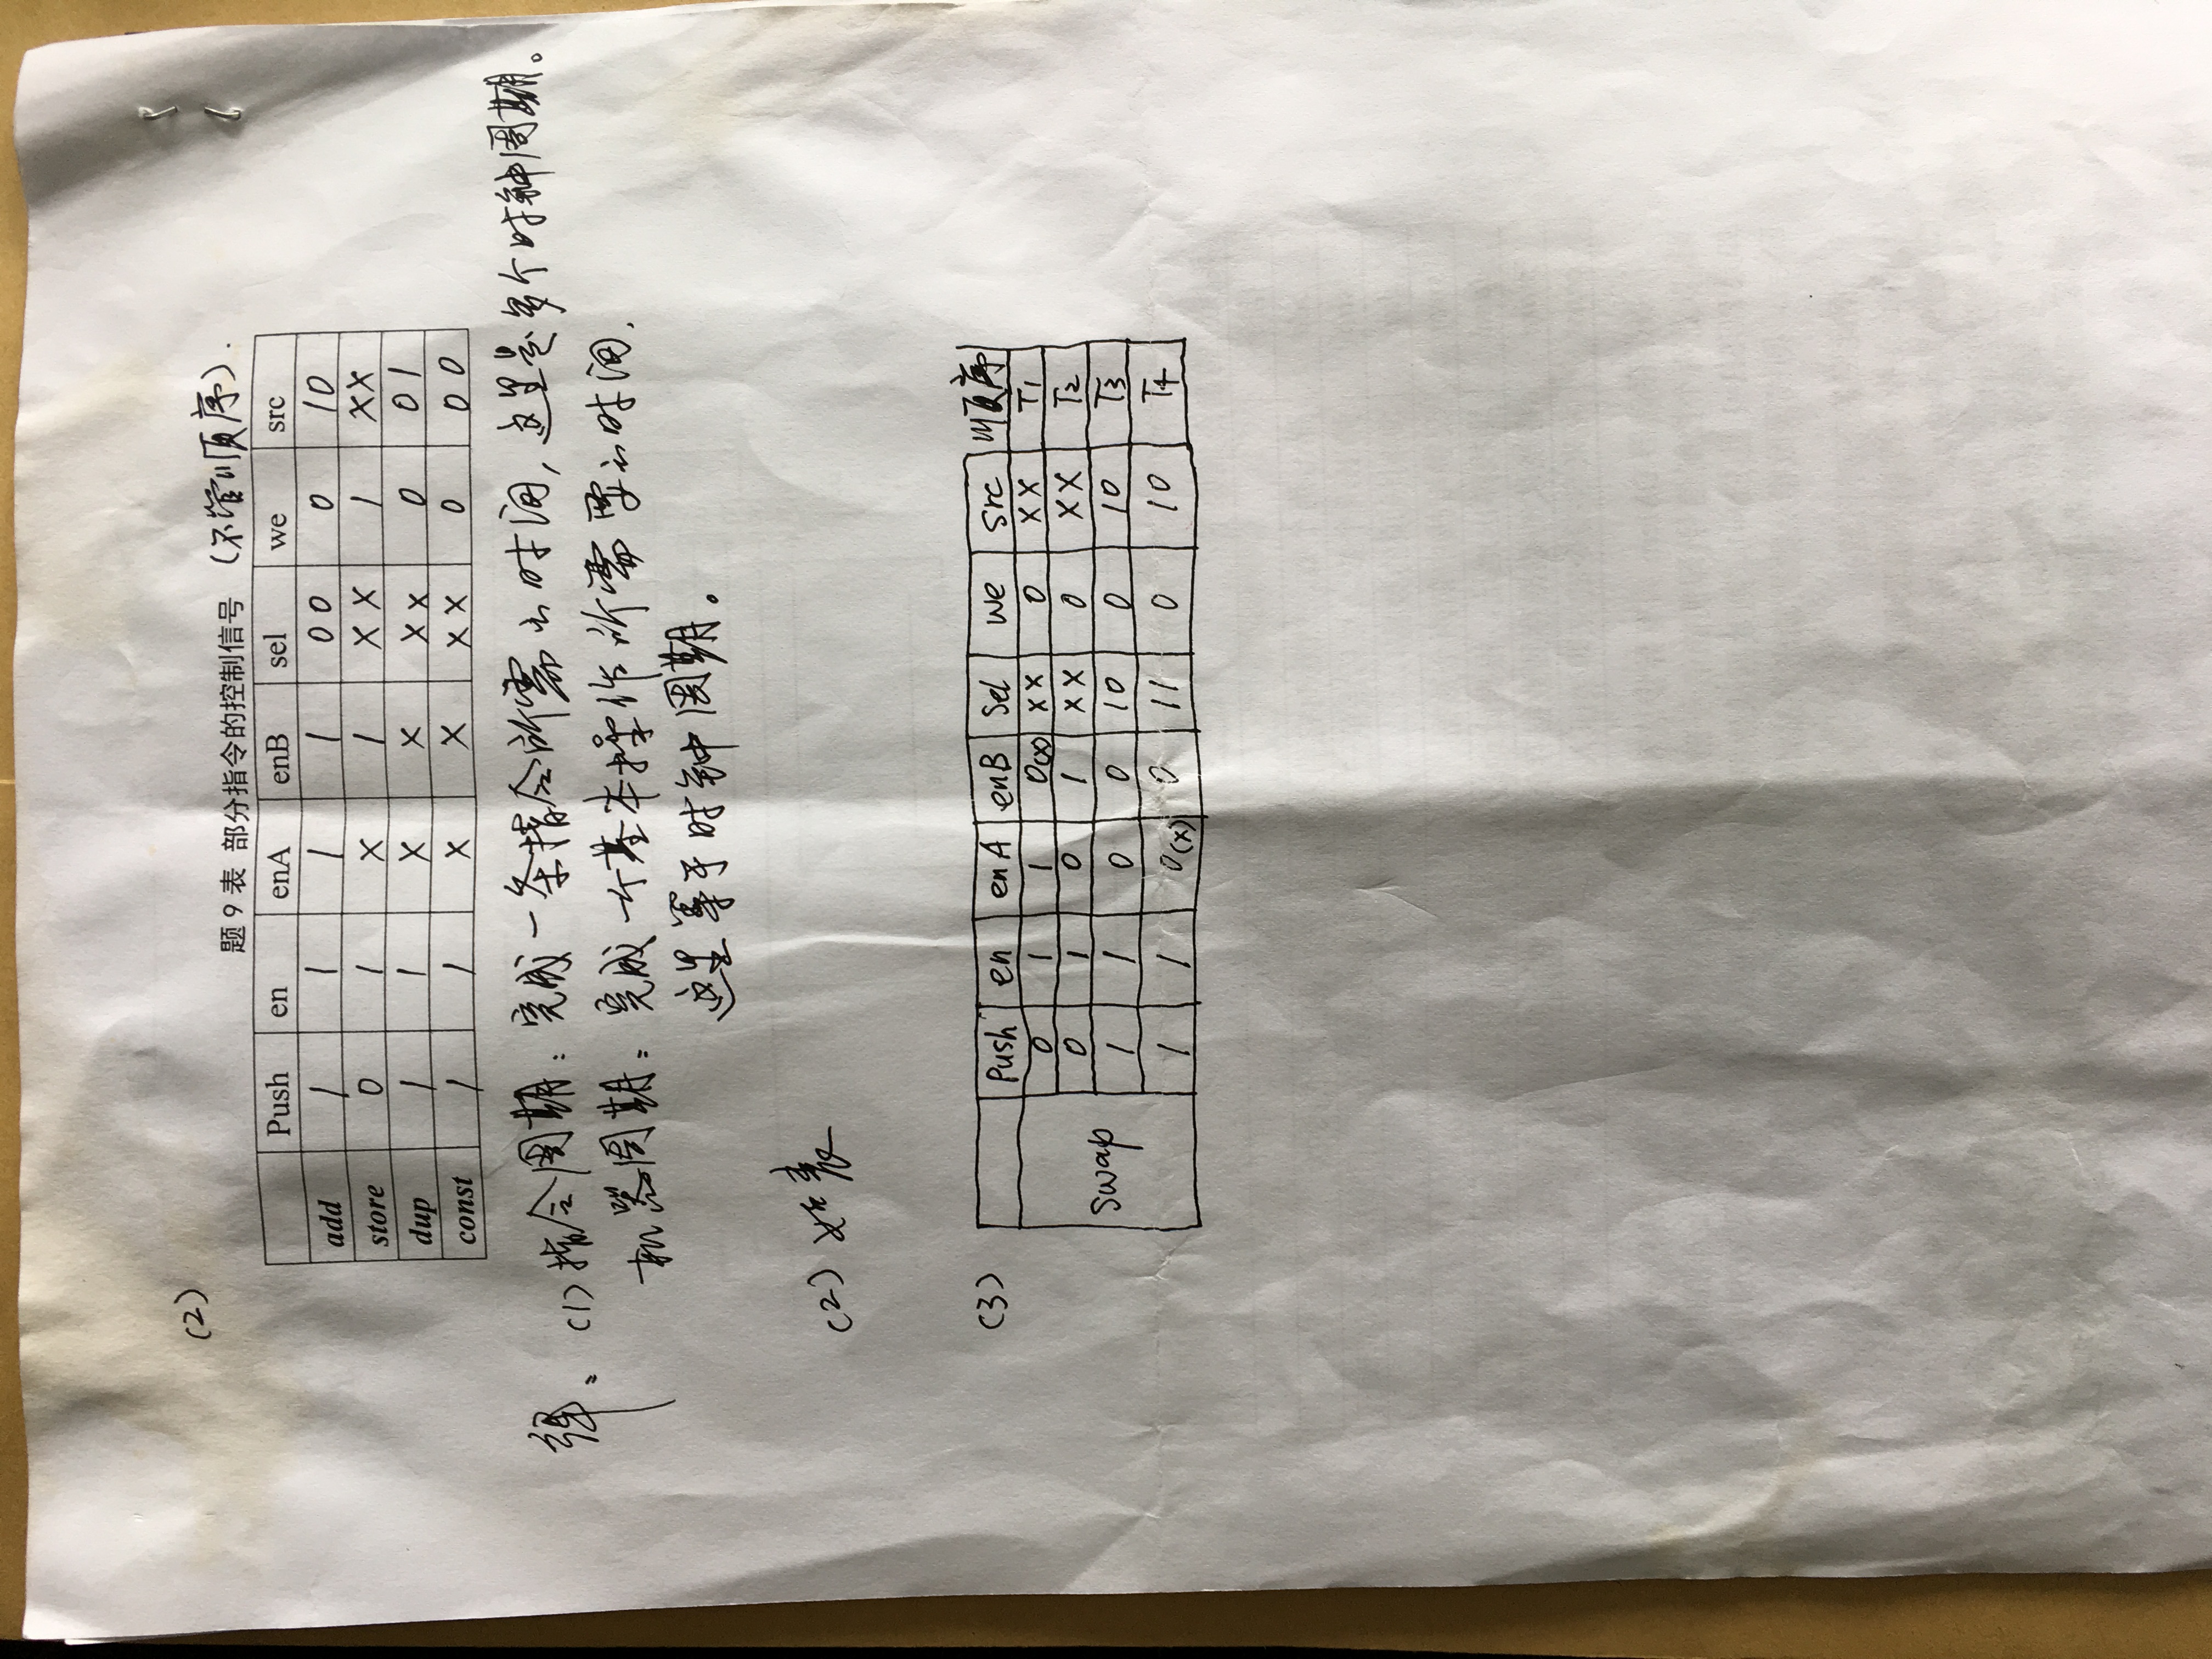 (2)
题9表 部分指令的控制信号 (不管顺序).
Push en enA enB sel we src
add 1 1 1 1 00 0 10
store 0 1 X 1 XX 1 XX
dup 1 1 X X XX 0 01
const 1 1 X X XX 0 00
解: (1) 指令周期: 完成一条指令所需的时间, 这里是多个时钟周期。
机器周期: 完成一个基本操作所需要的时间.
这里等于时钟周期。
(2) 如表
(3)
Push en enA enB Sel we Src 顺序
Swap
0 1 1 0(x) XX 0 XX T1
0 1 0 1 XX 0 XX T2
1 1 0 0 10 0 10 T3
1 1 0(x) 0 11 0 10 T4